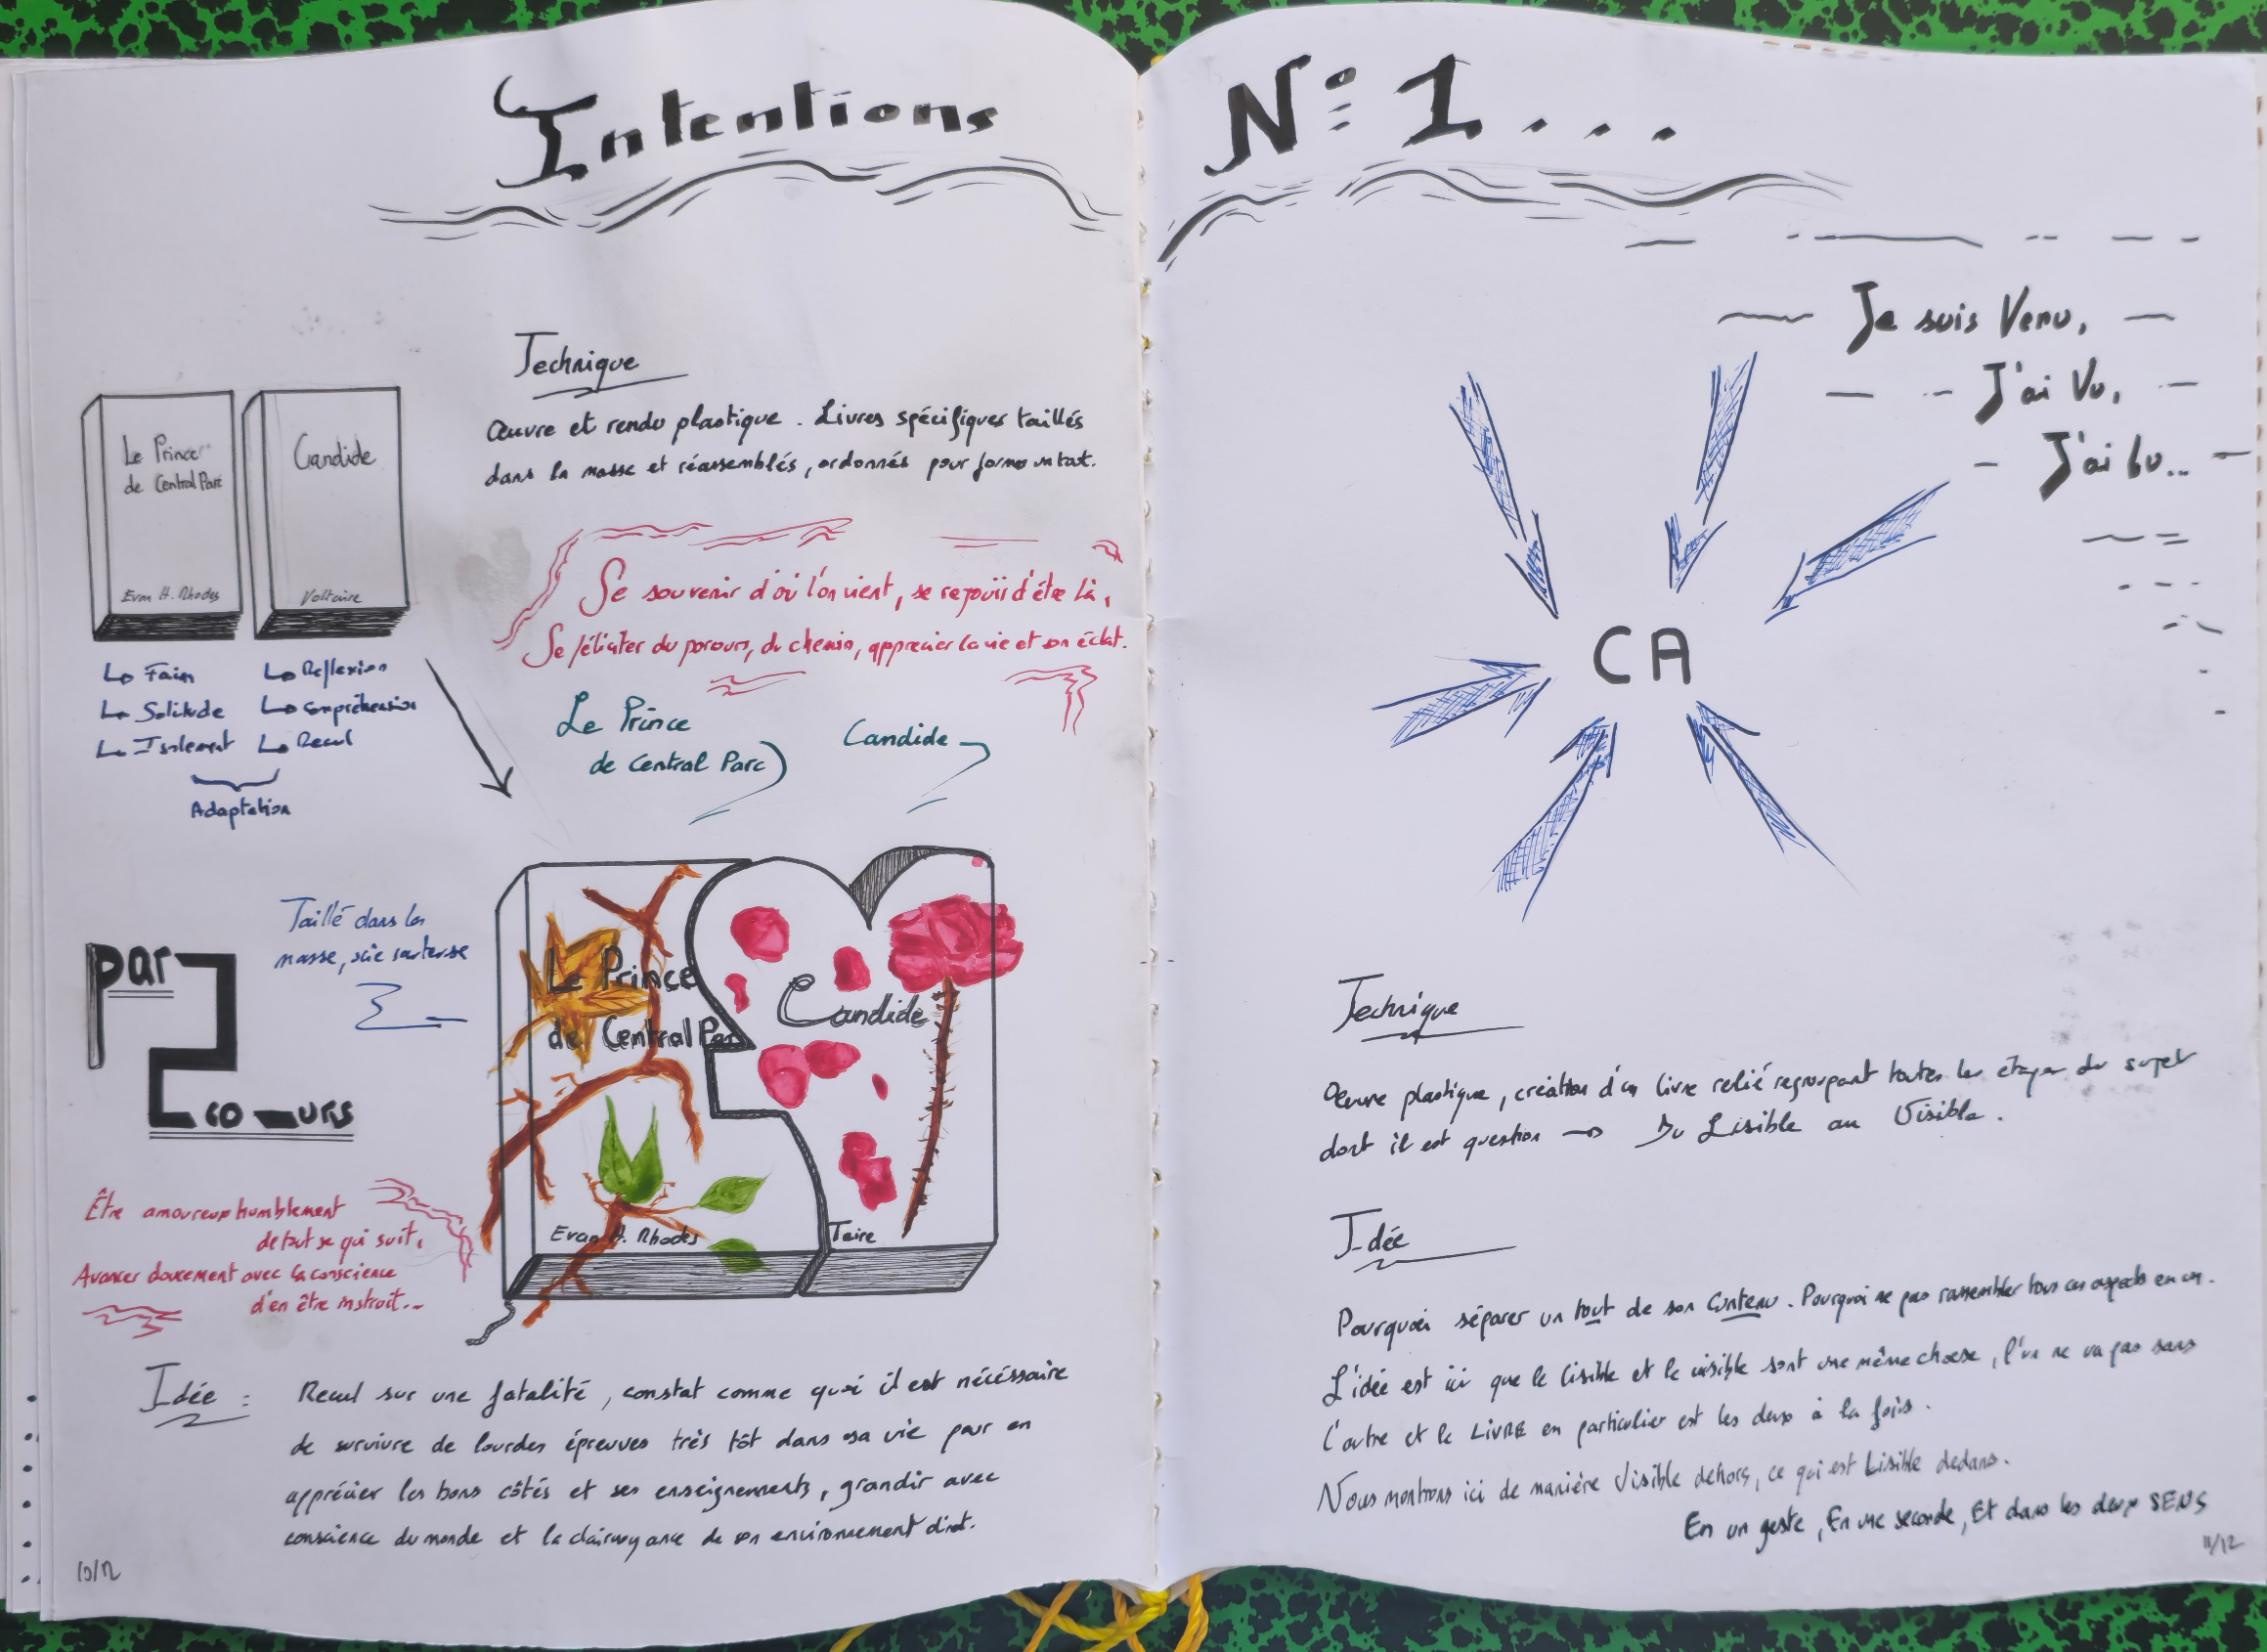 Intentions N° 1...
Technique
Œuvre et rendu plastique. Livres spécifiques taillés
dans la masse et réassemblés, ordonnés pour former un tout.
Le Prince
de Central Parc
Evan H. Rhodes
Candide
Voltaire
Faim
Solitude
Isolement
Reflexion
Compréhension
Recul
Adaptation
Se souvenir d'où l'on vient, se rejouir d'être là,
Se féliciter du parcours, du chemin, apprecier la vie et son éclat.
Le Prince
de Central Parc
Candide
Taillé dans la
masse, scie sauteuse
par
cours
Le Prince
de Central Parc
Evan H. Rhodes
Candide
Taire
Être amoureux humblement
de tout se qui suit,
Avancer doucement avec la conscience
d'en être instruit...
Idée :
Recul sur une fatalité, constat comme quoi il est nécéssaire
de survivre de lourdes épreuves très tôt dans sa vie pour en
apprécier les bons côtés et ses enseignements, grandir avec
conscience du monde et la clairvoyance de son environnement direct.
10/12
Je suis Venu,
J'ai Vu,
J'ai Lu...
CA
Technique
Œuvre plastique, création d'un livre relié regroupant toutes les étapes du sujet
dont il est question → Du Lisible au Visible.
Idée
Pourquoi séparer un tout de son contenu. Pourquoi ne pas rassembler tous ces aspects en un.
L'idée est ici que le lisible et le visible sont une même chose, l'un ne va pas sans
l'autre et le LIVRE en particulier est les deux à la fois.
Nous montrons ici de manière Visible dehors, ce qui est Lisible dedans.
En un geste, En une seconde, Et dans les deux SENS
11/12